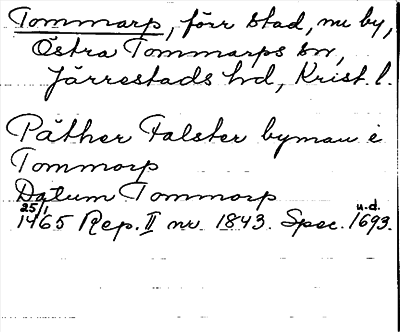 Tommarp, förr stad, nu by,
Östra Tommarps sn,
Järrestads hd, Krist. l.
Päther Falster byman i
Tommorp
Datum Tommorp
25/1 1465 Rep. II nr. 1843. Spec. u.d. 1693.